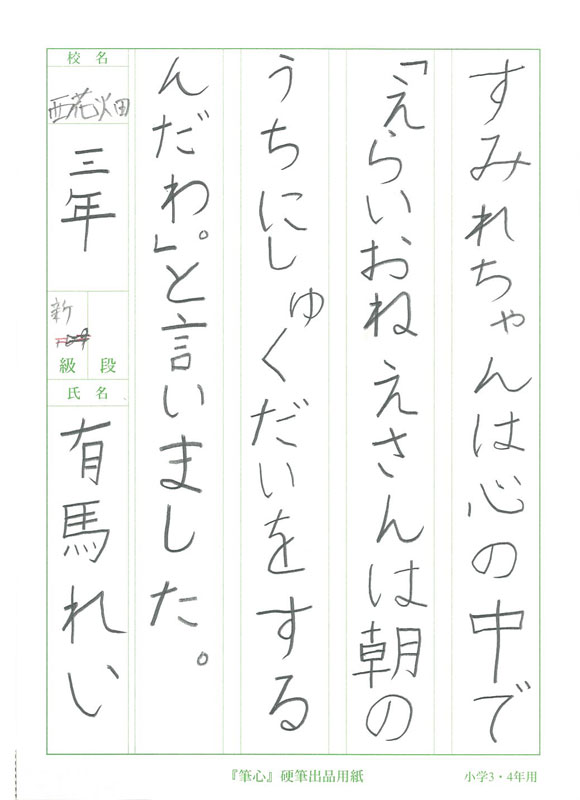 すみれちゃんは心の中で
「えらいおねえさんは朝の
うちにしゅくだいをする
んだわ」。と言いました。
校名
西花畑
三年
新
段
級
氏名
有馬れい
『筆心』硬筆出品用紙
小学3・4年用